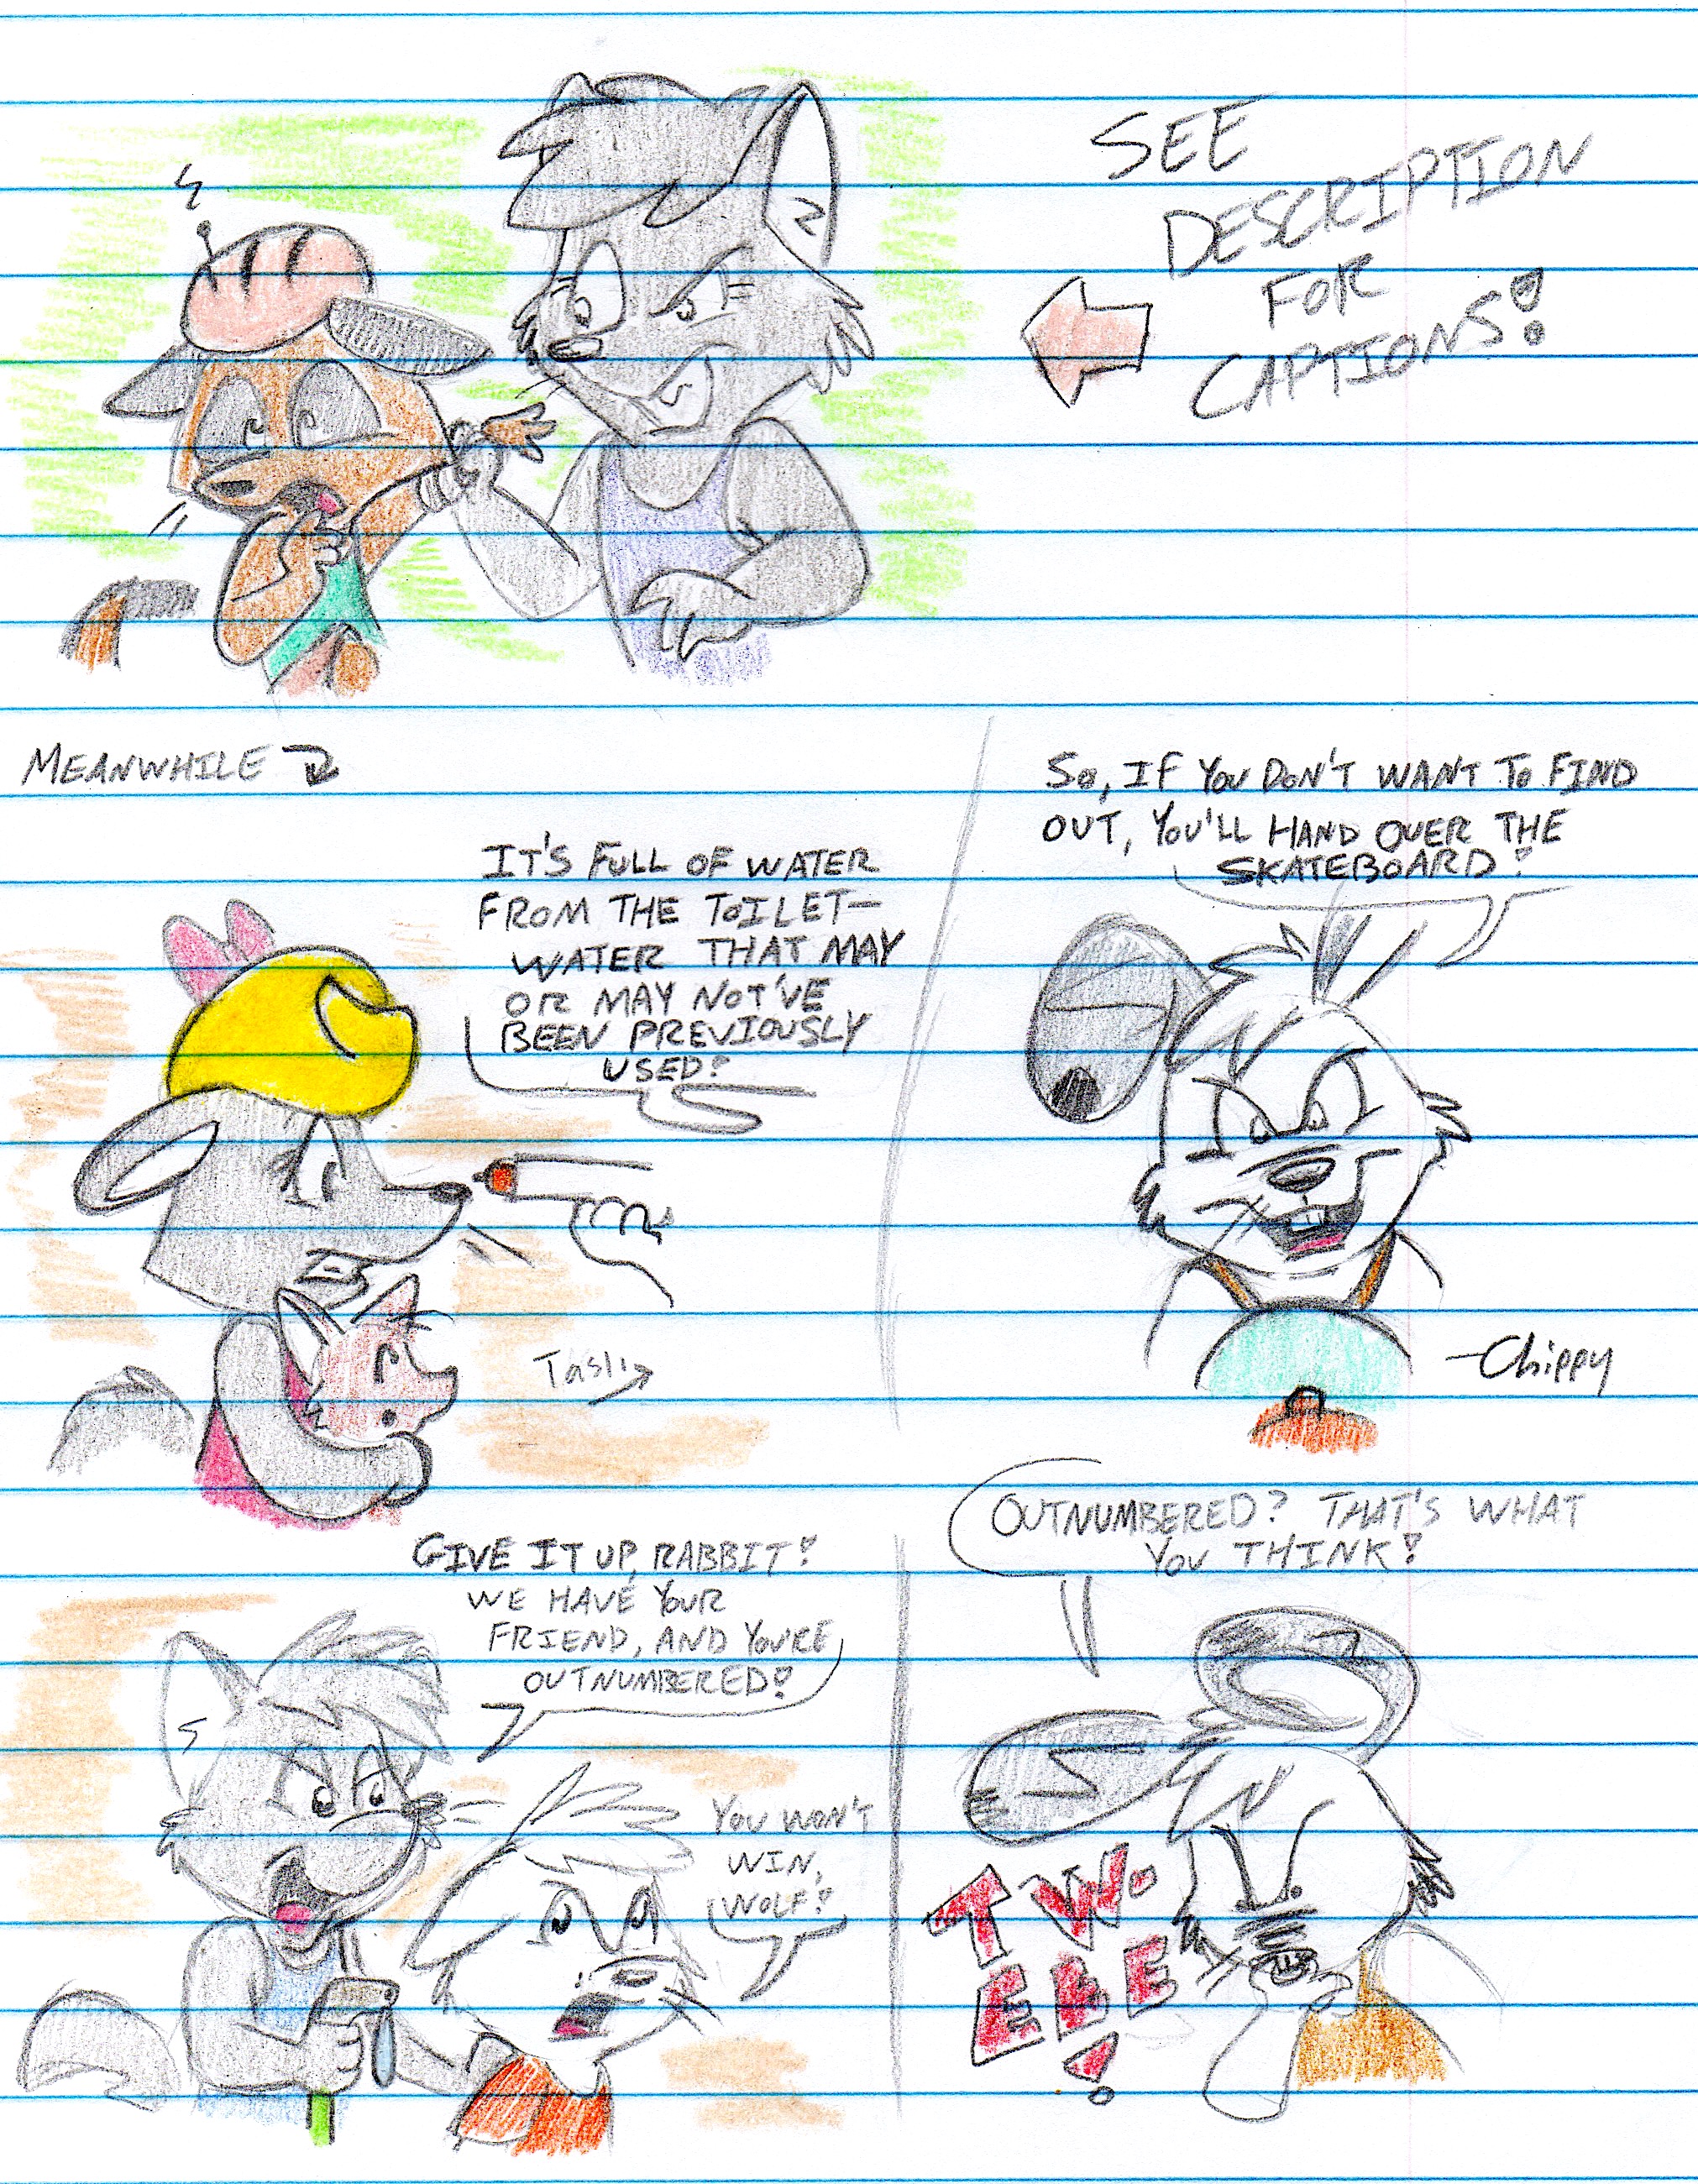 SEE
DESCRIPTION
FOR
CAPTIONS!
MEANWHILE
SO, IF YOU DON'T WANT TO FIND
OUT, YOU'LL HAND OVER THE
SKATEBOARD!
IT'S FULL OF WATER
FROM THE TOILET—
WATER THAT MAY
OR MAY NOT'VE
BEEN PREVIOUSLY
USED!
-Chippy
OUTNUMBERED? THAT'S WHAT
YOU THINK!
GIVE IT UP, RABBIT!
WE HAVE YOUR
FRIEND, AND YOU'RE
OUTNUMBERED!
YOU WON'T
WIN,
WOLF!
TW-
EEE
!